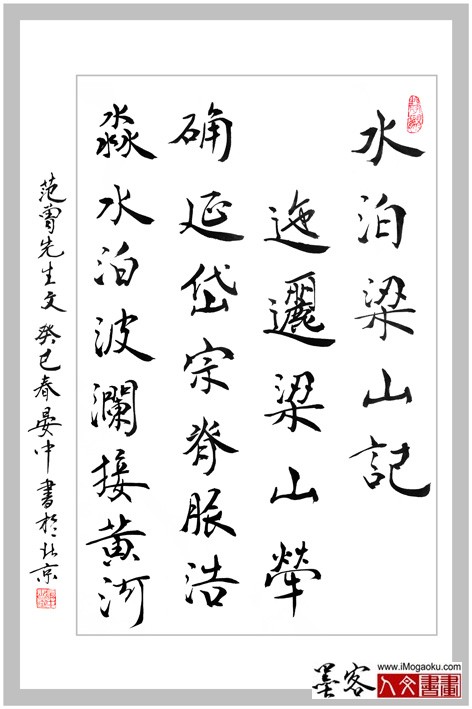 水泊梁山記
迤邐梁山犖
确延岱宗脊脈浩
淼水泊波瀾接黃河
范曾先生文 癸巳春晏中書於北京
www.iMogaoku.com
墨客人文書畫